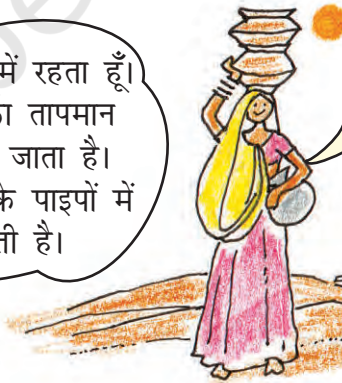 में रहता हूँ।
तापमान
जाता है।
के पाइपों में
ती है।